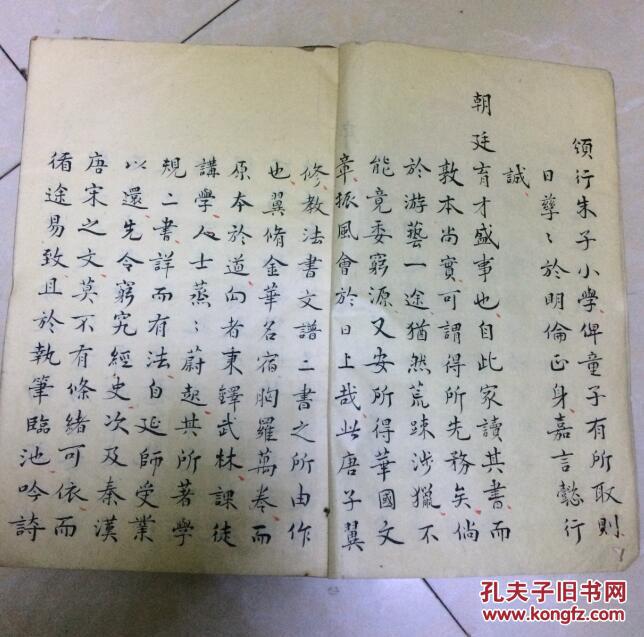 頒行朱子小學俾童子有所取則
日孳〻於明倫正身嘉言懿行
誠
朝廷育才盛事也自此家讀其書而
敦本尚實可謂得所先務矣倘
於游藝一途猶然荒踈涉獵不
能竟委窮源又安所得華國文
章振風會於日上哉此唐子翼
修教法書文譜二書之所由作
也翼脩金華名宿胸羅萬卷而
原本於道向者東鐸武林課徒
講學人士蒸〻蔚起其所著學
規二書詳而有法自延師受業
以還先令窮究經史次及秦漢
唐宋之文莫不有條緒可依而
循途易致且於執筆臨池吟詩
孔夫子旧书网
www.kongfz.com